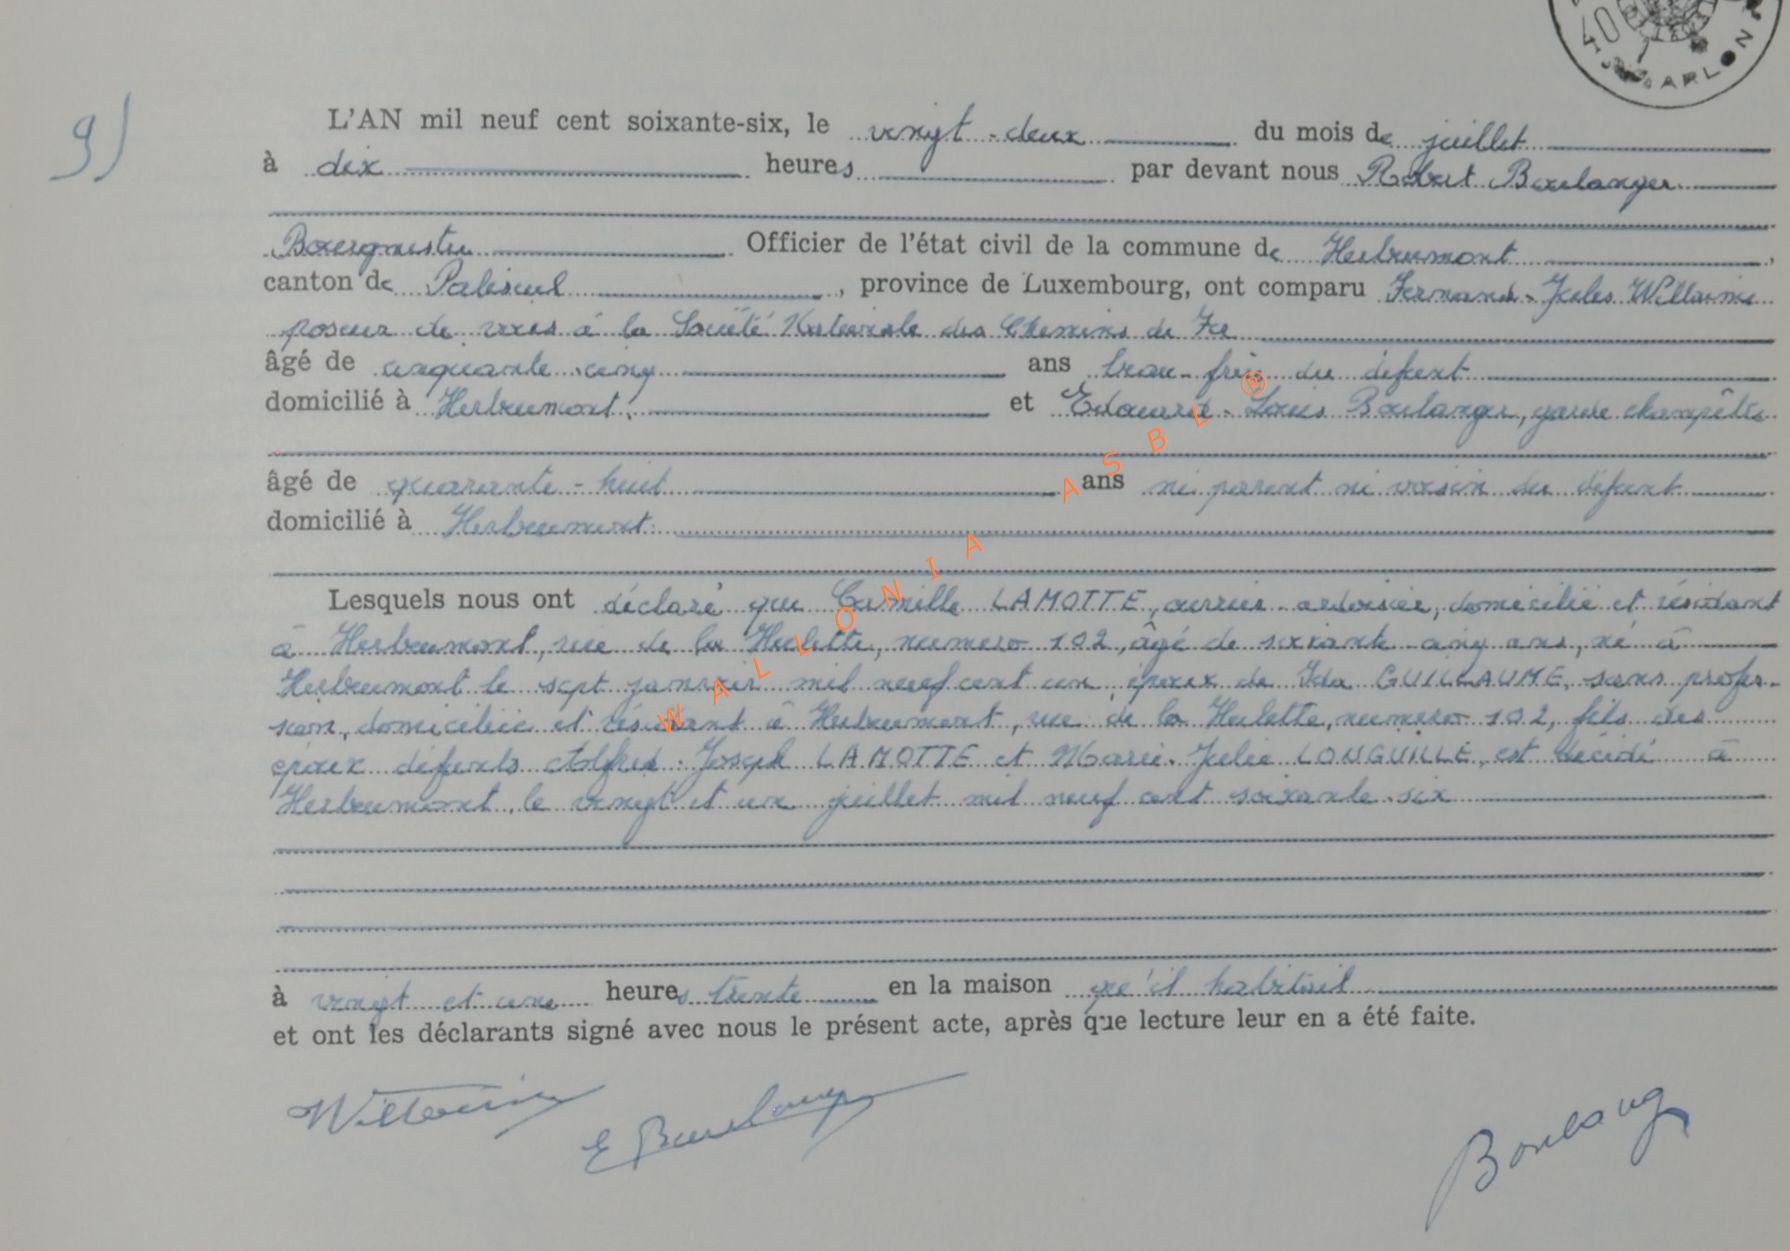 ARLON
9)
L'AN mil neuf cent soixante-six, le vingt-deux du mois de juillet
à dix heures par devant nous Robert Boulanger
Bourgmestre Officier de l'état civil de la commune de Herbeumont,
canton de Paliseul, province de Luxembourg, ont comparu Fernand-Jules Willaime
poseur de voies à la Société Nationale des Chemins de Fer
âgé de cinquante cinq ans beau-frère du défunt
domicilié à Herbeumont et Edouard-Louis Boulanger, garde champêtre
âgé de quarante-huit ans ni parent ni voisin du défunt
domicilié à Herbeumont
Lesquels nous ont déclaré que Camille LAMOTTE, ouvrier ardoisier, domicilié et résidant
à Herbeumont, rue de la Hulette, numéro 102, âgé de soixante cinq ans, né à
Herbeumont le sept janvier mil neuf cent un, époux de Ida GUILLAUME, sans profes-
sion, domiciliée et résidant à Herbeumont, rue de la Hulette, numéro 102, fils des
époux défunts Joseph LAMOTTE et Marie-Julie LONGUILLE, est décédé à
Herbeumont, le vingt et un juillet mil neuf cent soixante-six
à vingt et une heures trente en la maison qu'il habitait
et ont les déclarants signé avec nous le présent acte, après que lecture leur en a été faite.
Willaime
E Boulanger
Boulanger
WALLONIA ASBL ®